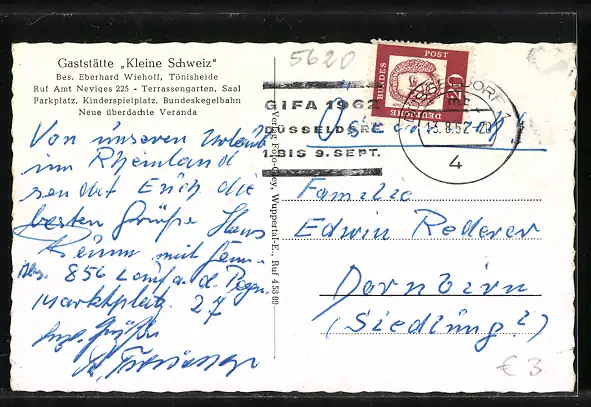 Gaststätte „Kleine Schweiz"
Bes. Eberhard Wiehoff, Tönisheide
Ruf Amt Neviges 225 - Terrassengarten, Saal
Parkplatz, Kinderspielplatz, Bundeskegelbahn
Neue überdachte Veranda
5620
DEUTSCHE BUNDESPOST
20
GIFA 1962
DÜSSELDORF
1. BIS 9. SEPT.
DÜSSELDORF 1
13.8.62-20
4
Von unseren Urlaub
im Rheinland
sendet Euch die
besten Grüße Hans
mit Fam.
856 Lauf a. d. Pegn.
Marktplatz 27
Grüße
Verlag Foto-Gey, Wuppertal-E., Ruf 4 53 09
Familie
Edwin Rederer
Dornbirn
(Siedlung?)
€ 3